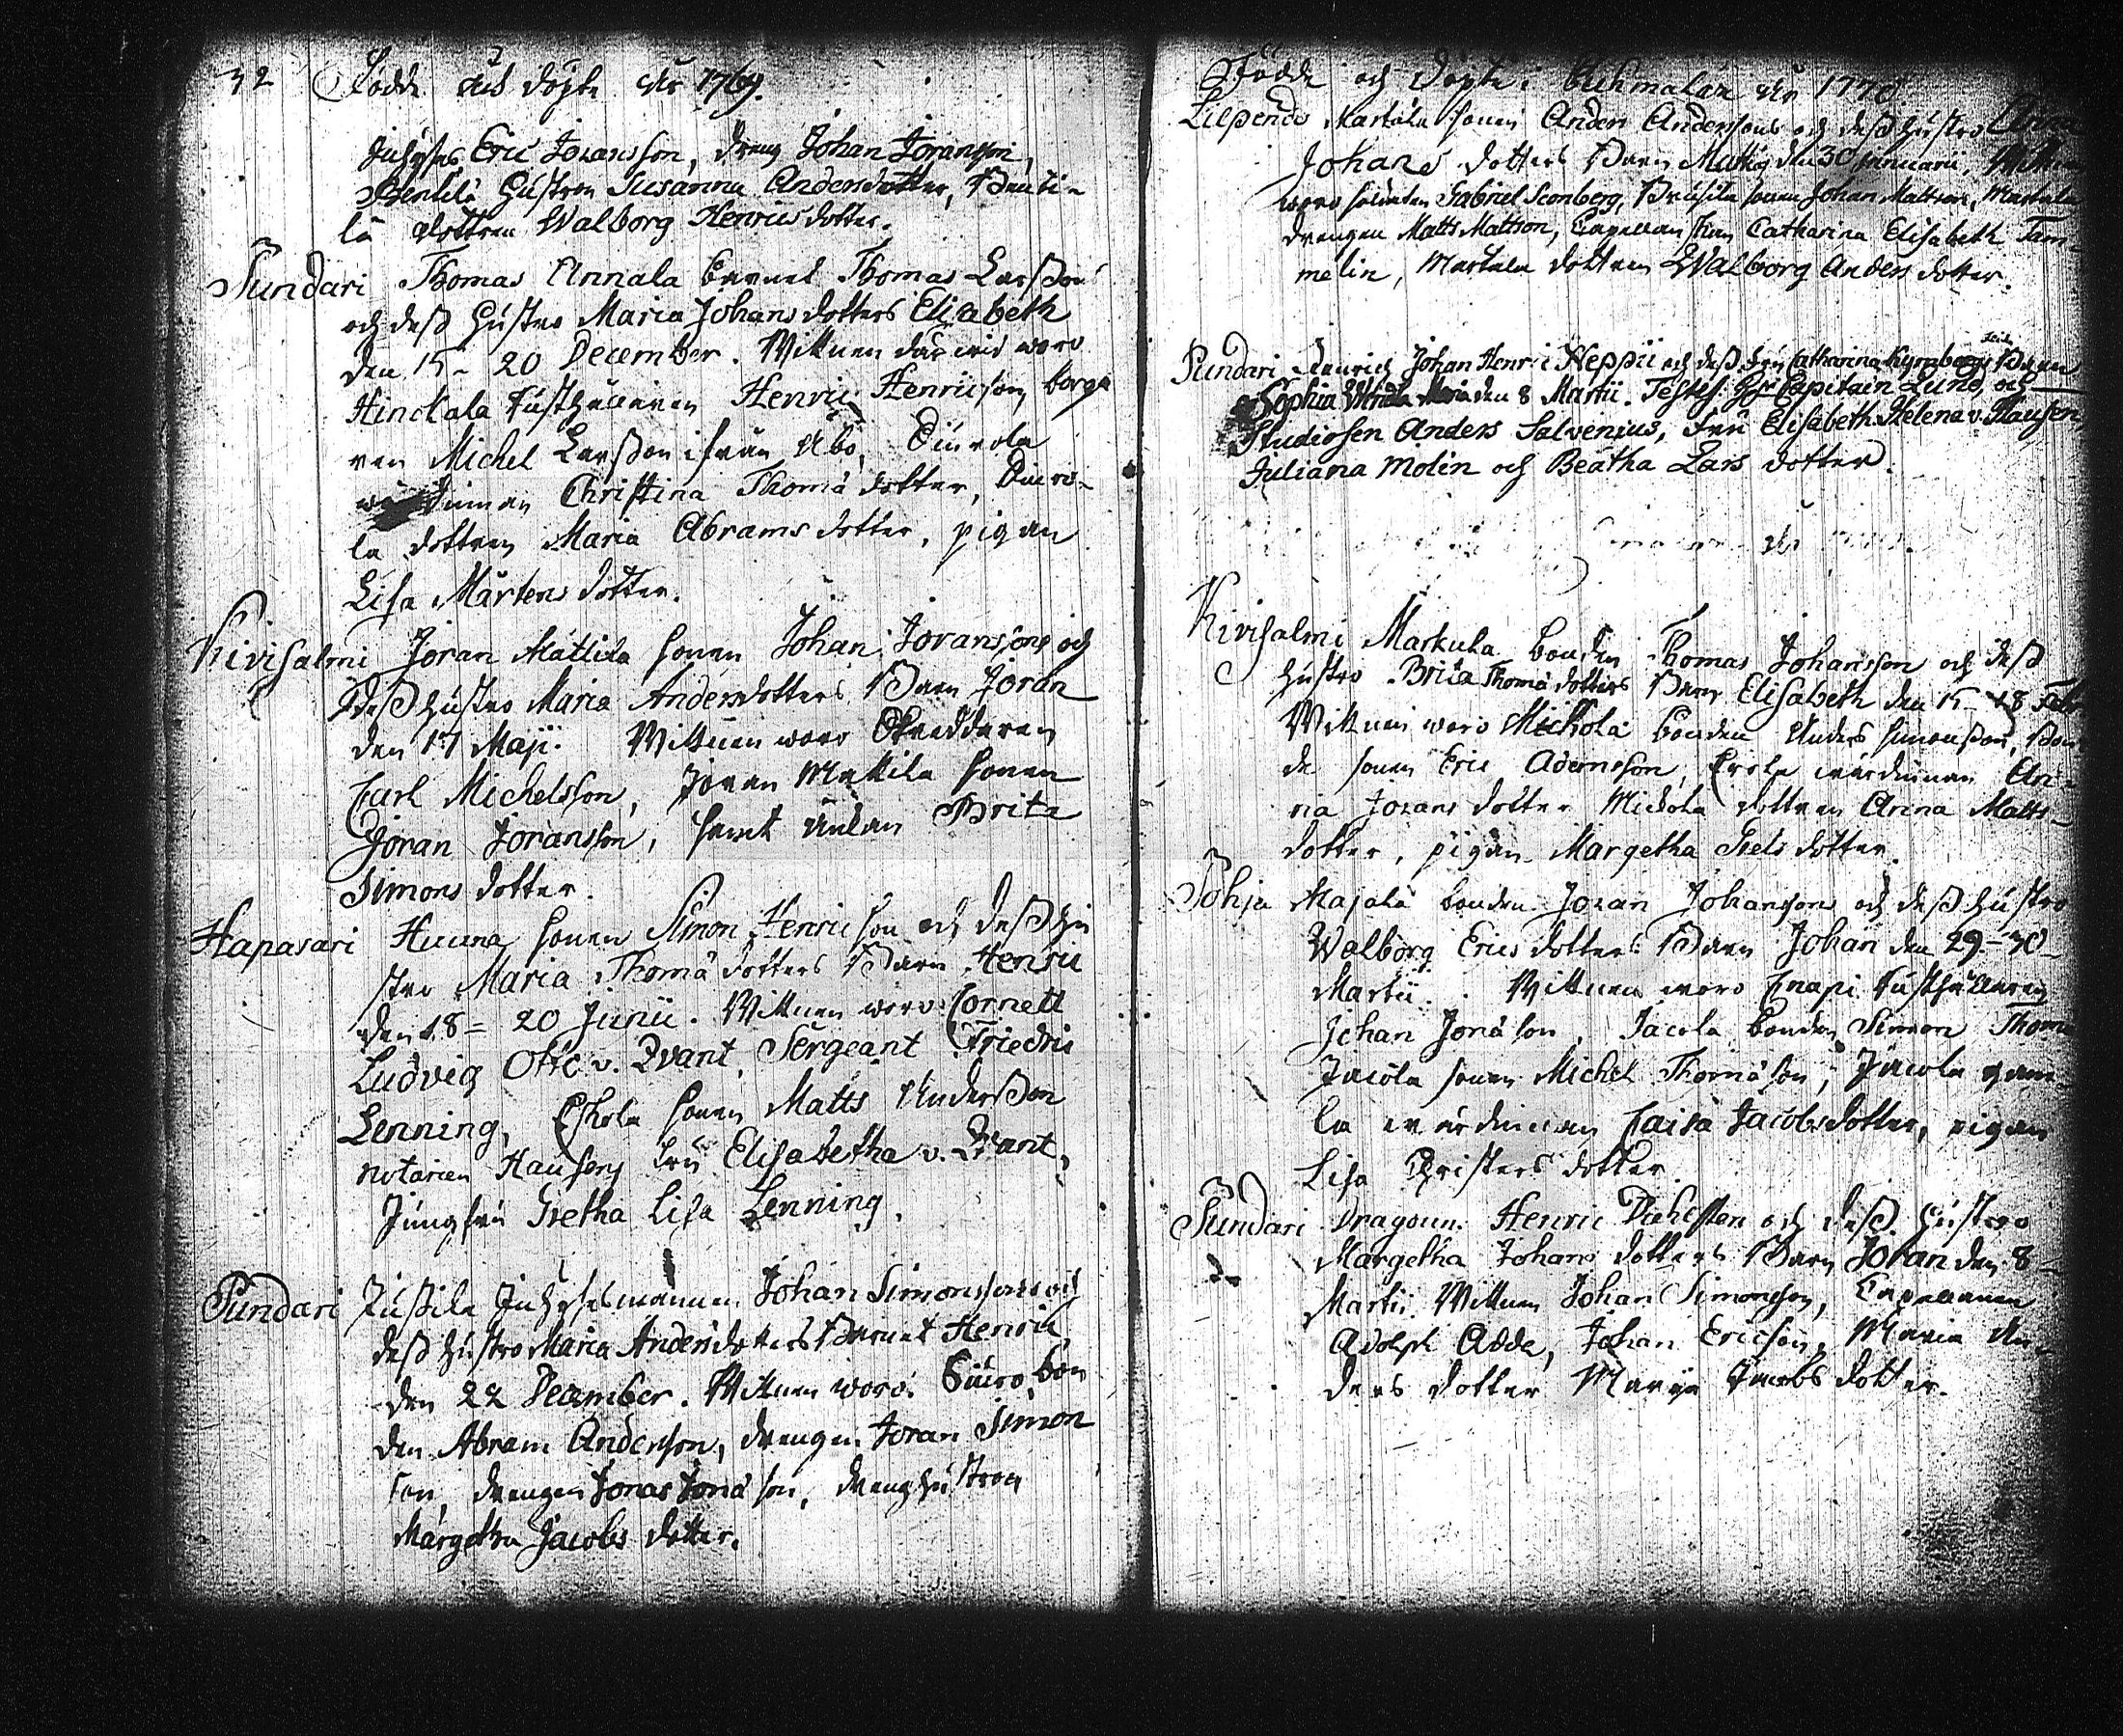 32 Födde och döpte åhr 1769.
Inhyses Eric Joransson, dreng Johan Joransson,
Hustron Susanna Andersdotter, Pentti-
lä dottren Walborg Henricsdotter.
Sundari Thomas Annala Barnet Thomas Larsson
och dess hustro Maria Johans dotters Elisabeth
den 15 - 20 December. Wittnen där wid woro
Hinckala Rusthållaren Henric Henricsson, borga
ren Michel Larsson ifrån Åbo,
wärdinnan Christina Thomä dotter,
la dottren Maria Abrams dotter, pigan
Lisa Mårtens dotter.
Kivisalmi Joran Mattila sonen Johan Joranssons och
dess hustro Maria Andersdotters Barn Joran
den 17 Maji. Wittnen woro Skreddaren
Carl Michelsson, Joran Mattila sonen
Joran Joransson, samt Enkan Brita
Simons dotter.
Hapasari sonen Simon Henricson och dess hu
stro Maria Thomä dotters Barn Henric
den 18 = 20 Junii. Wittnen woro Cornett
Ludvig Otto v. Qvant, Sergeant Friedric
Lenning, Eskola sonen Matts Andersson
notarien Hausen, fru Elisabetha v. Qvant,
Jungfru Gretha Lisa Lenning.
Sundari Jussila Inhysesmannen Johan Simonssons och
dess hustro Maria Andersdotters Barnet Henric
den 22 December. Wittnen woro bon
den Abram Andersson, drengen Joran Simon
son, drengen Jonas Jonä son, dreng hustron
Margetha Jacobs dotter.
Födde och döpte i åhr 1770.
Liependo Martila sonen Anders Anderssons och dess hustro Anna
Johans dotters Barn Matts den 30 Januarii, Wittnen
woro soldaten Gabriel sonen Johan Mattson, Martila
drengen Matts Mattson, Capellans frun Catharina Elisabeth Tam-
melin, Martila dottren Walborg Anders dotter.
Sundari Johan Henric Neppii och dess fru Catharina Barn
Sophia den 8 Martii. Testes. Hr Capitain Lund, och
Studiosen Anders Salvenius, Fru Elisabeth Helena v. Hausen,
Juliana Molin och Beatha Lars dotter.
Kivisalmi Markula bonden Thomas Johansson och dess
hustro Brita Thomä dotters Barn Elisabeth den 15 - 18 Feb
Wittnen woro Mickola bonden Anders Simonsson, bon
de sonen Eric Adamsson, Erola wärdinnan An-
na Jorans dotter Mickola dottren Anna Matts-
dotter, pigan Margetha Nels dotter.
Pohja Majala bonden Joran Johanssons och dess hustro
Walborg Erics dotters Barn Johan den 29 - 30
Martii. Wittnen woro Cnapi Rusthållaren
Johan Jonäson, Jacola bonden Simon Thom
Jacola sonen Michel Thomäson, Jacola gam
la wärdinnan Caisa Jacobsdotter, pigan
Lisa Christers dotter
Sundari Dragoun. Henric och dess hustro
Margetha Johans dotters Barn Joran den 8
Martii. Wittnen Johan Simonsson, Capellanen
Adolph Adde, Johan Ericsson, Maria An-
ders dotter Maria Jacobs dotter.